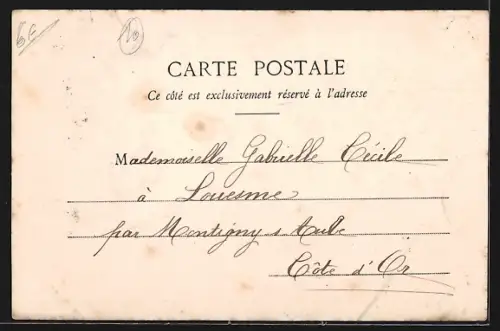 6€
10
CARTE POSTALE
Ce côté est exclusivement réservé à l'adresse
Mademoiselle Gabrielle Cécile
à Louesme
par Montigny s Aube
Côte d'Or